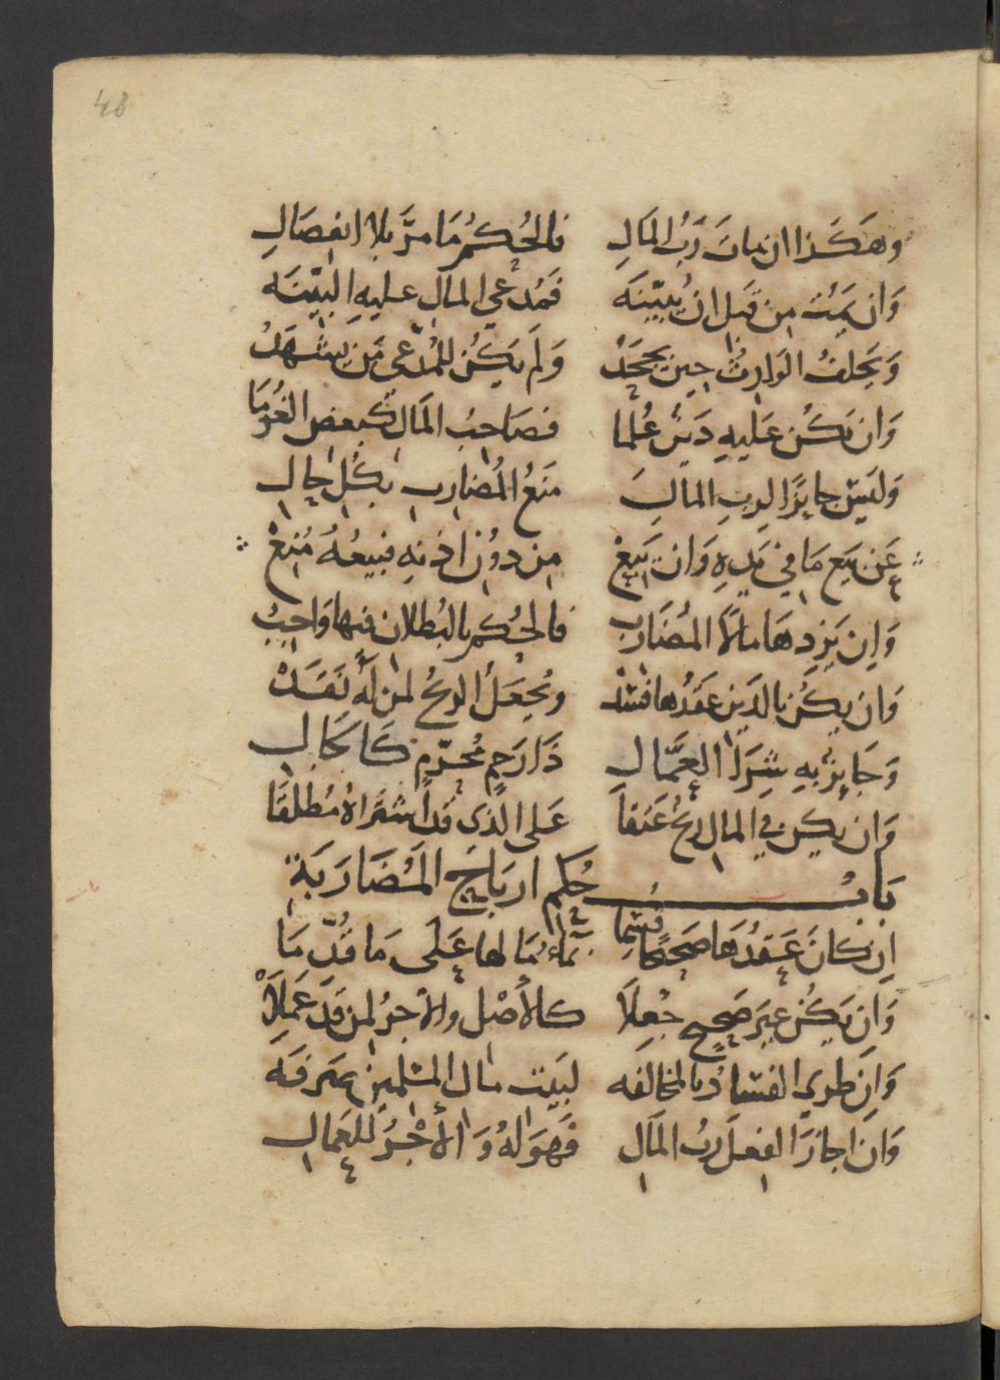 48
وهَكَذا ان مات رَبُّ المَالِ فالحُكمُ مَا مرَّ بلا انفصَالِ
وَان يَمُت من قَبل ان يُبيّنَه فمُدعي المال عليهِ البيّنَه
وَيَحلفُ الوَارثُ حين يجحَدُ وَلَم يكُن للمُدّعي مَن يشهَدُ
وَان يكُن عَليهِ دَينٌ عُلما فصَاحبُ المَال كبعض الغُرمَا
وَليسَ جايزًا لربِ المالِ مَنعُ المُضارب بكُل حال
عَن بَيع مَا في يَدِهِ وَان يَبِعْ من دُون اذنهِ فبَيعُهُ مُنِعْ
وَإن يَزِدهَا مالاً المُضَارِبُ فالحُكم بالبُطلان فيها وَاجبُ
وَان يكُن بالدَين عَقدُها فسَدْ ويُجعَلُ الربحُ لمن لَهُ نَقَدْ
وَجَايزٌ بهِ شِرَا العمَّالِ ذَا رَحِمٍ مُحرّمٍ كَالخَالِ
وَان يكن في المال ربحٌ عَتَقَا عَلى الذي قد اشتَراهُ مُطلقَا
بَابُ حُكم ارباح المُضَارَبَةِ
ان كانَ عَقدُهَا صَحيحًا قُسِما نماءُ مَالها عَلى مَا قُدّمَا
وَان يَكُن غيرَ صَحيحٍ جُعِلَا كالأصْل والأجرُ لمن قد عَمِلَا
وَان طرى الفسَادُ بالمخالفَه لبَيت مال المسلمين صَرفَه
وَان اجازَ الفعلَ ربُ المَالِ فَهوَ لهُ وَالأجْرُ للعمالِ